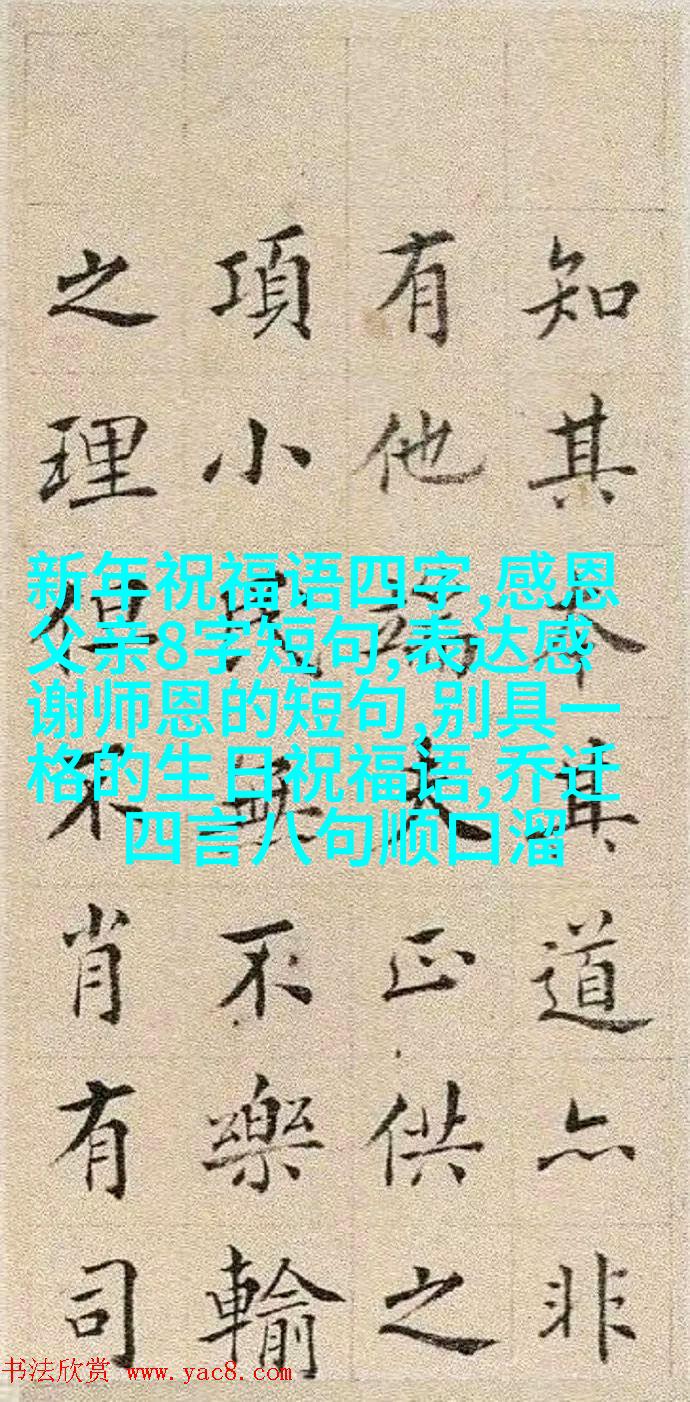 知其其道亦非
有他端夫正供之
項小無不樂輸
之理但不肖有司
新年祝福语四字,感恩
父亲8字短句,表达感
谢师恩的短句,别具一
格的生日祝福语,乔迁
四言八句顺口溜
书法欣赏 www.yac8.com